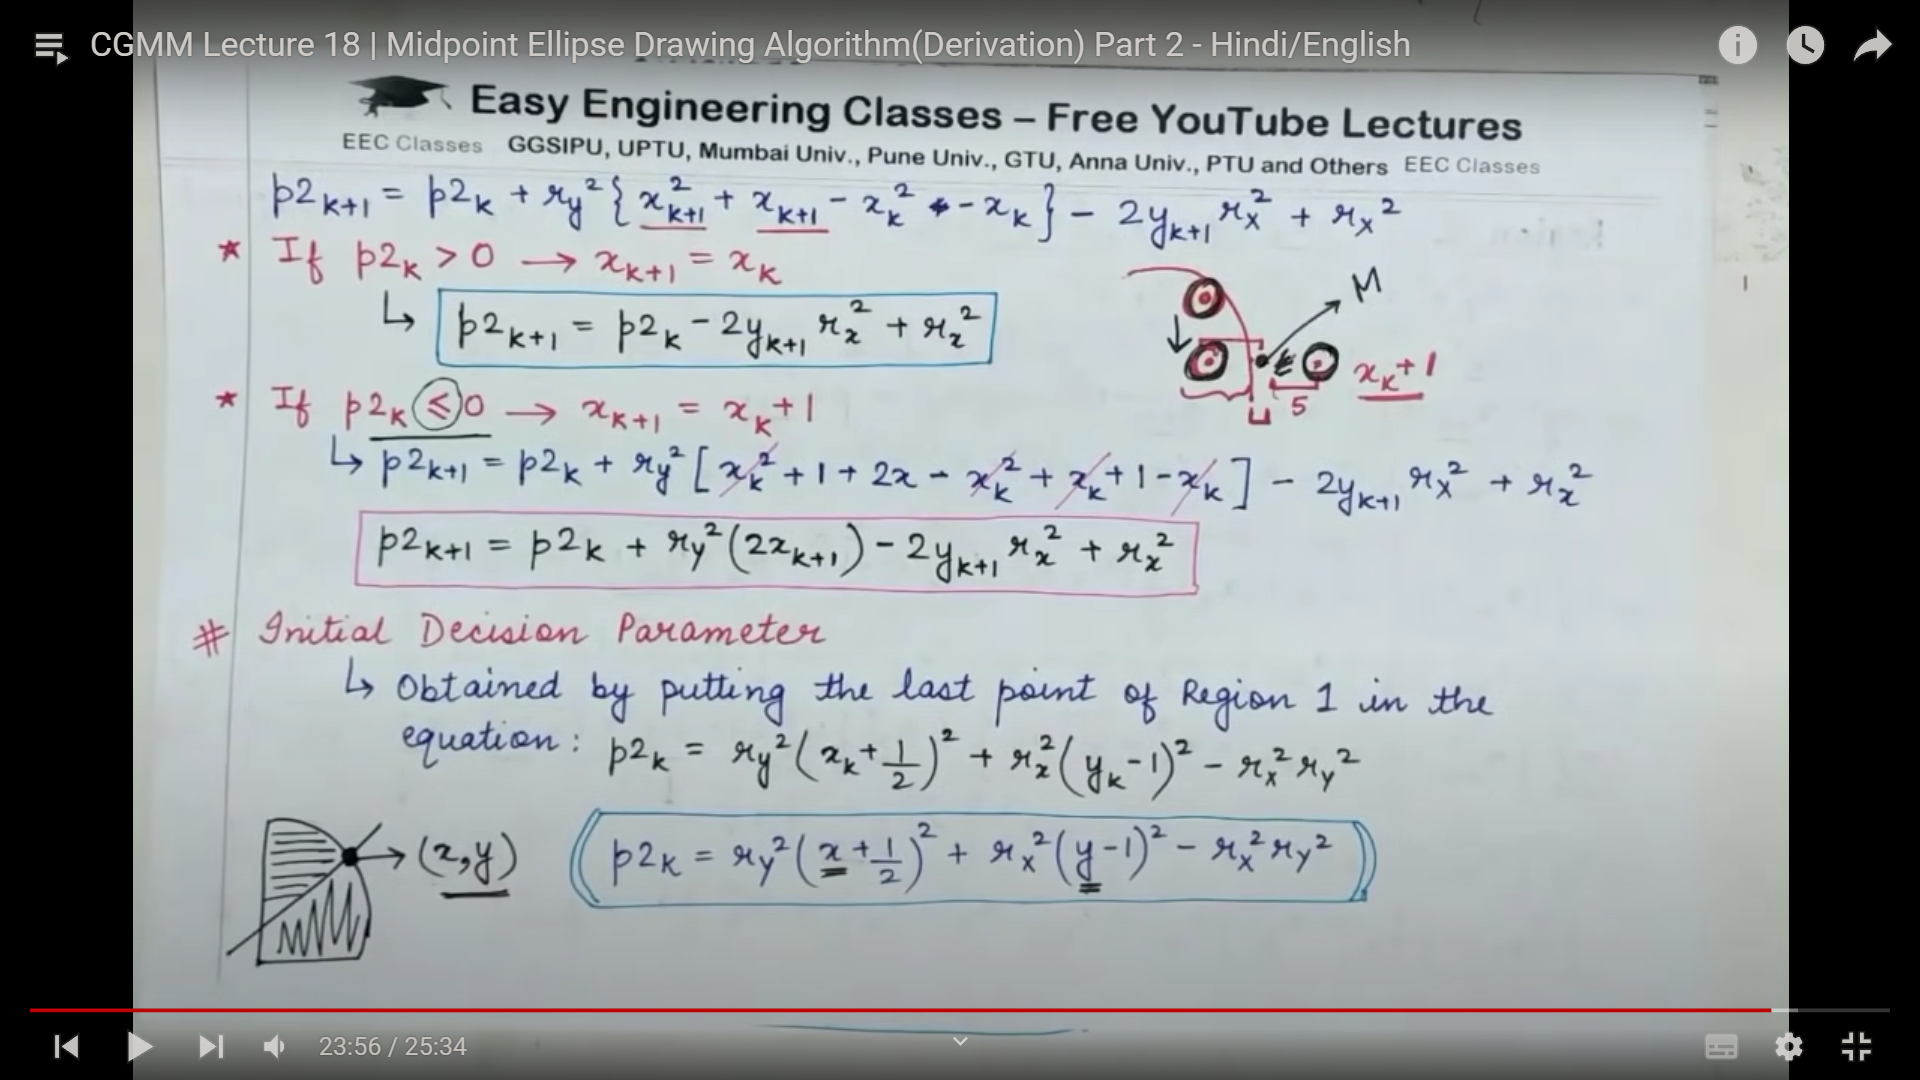 CGMM Lecture 18 | Midpoint Ellipse Drawing Algorithm(Derivation) Part 2 - Hindi/English
Easy Engineering Classes – Free YouTube Lectures
EEC Classes GGSIPU, UPTU, Mumbai Univ., Pune Univ., GTU, Anna Univ., PTU and Others EEC Classes
p2ₖ₊₁ = p2ₖ + ry² { x²ₖ₊₁ + xₖ₊₁ - xₖ² - xₖ } - 2yₖ₊₁ rx² + rx²
* If p2ₖ > 0 → xₖ₊₁ = xₖ
M
↳ p2ₖ₊₁ = p2ₖ - 2yₖ₊₁ rx² + rx²
xₖ+1
5
* If p2ₖ ≤ 0 → xₖ₊₁ = xₖ + 1
↳ p2ₖ₊₁ = p2ₖ + ry² [ xₖ² + 1 + 2x - xₖ² + xₖ + 1 - xₖ ] - 2yₖ₊₁ rx² + rx²
p2ₖ₊₁ = p2ₖ + ry² (2xₖ₊₁) - 2yₖ₊₁ rx² + rx²
# Initial Decision Parameter
↳ Obtained by putting the last point of Region 1 in the
equation: p2ₖ = ry² (xₖ + 1/2)² + rx² (yₖ - 1)² - rx² ry²
(x,y)
p2ₖ = ry² (x + 1/2)² + rx² (y - 1)² - rx² ry²
23:56 / 25:34